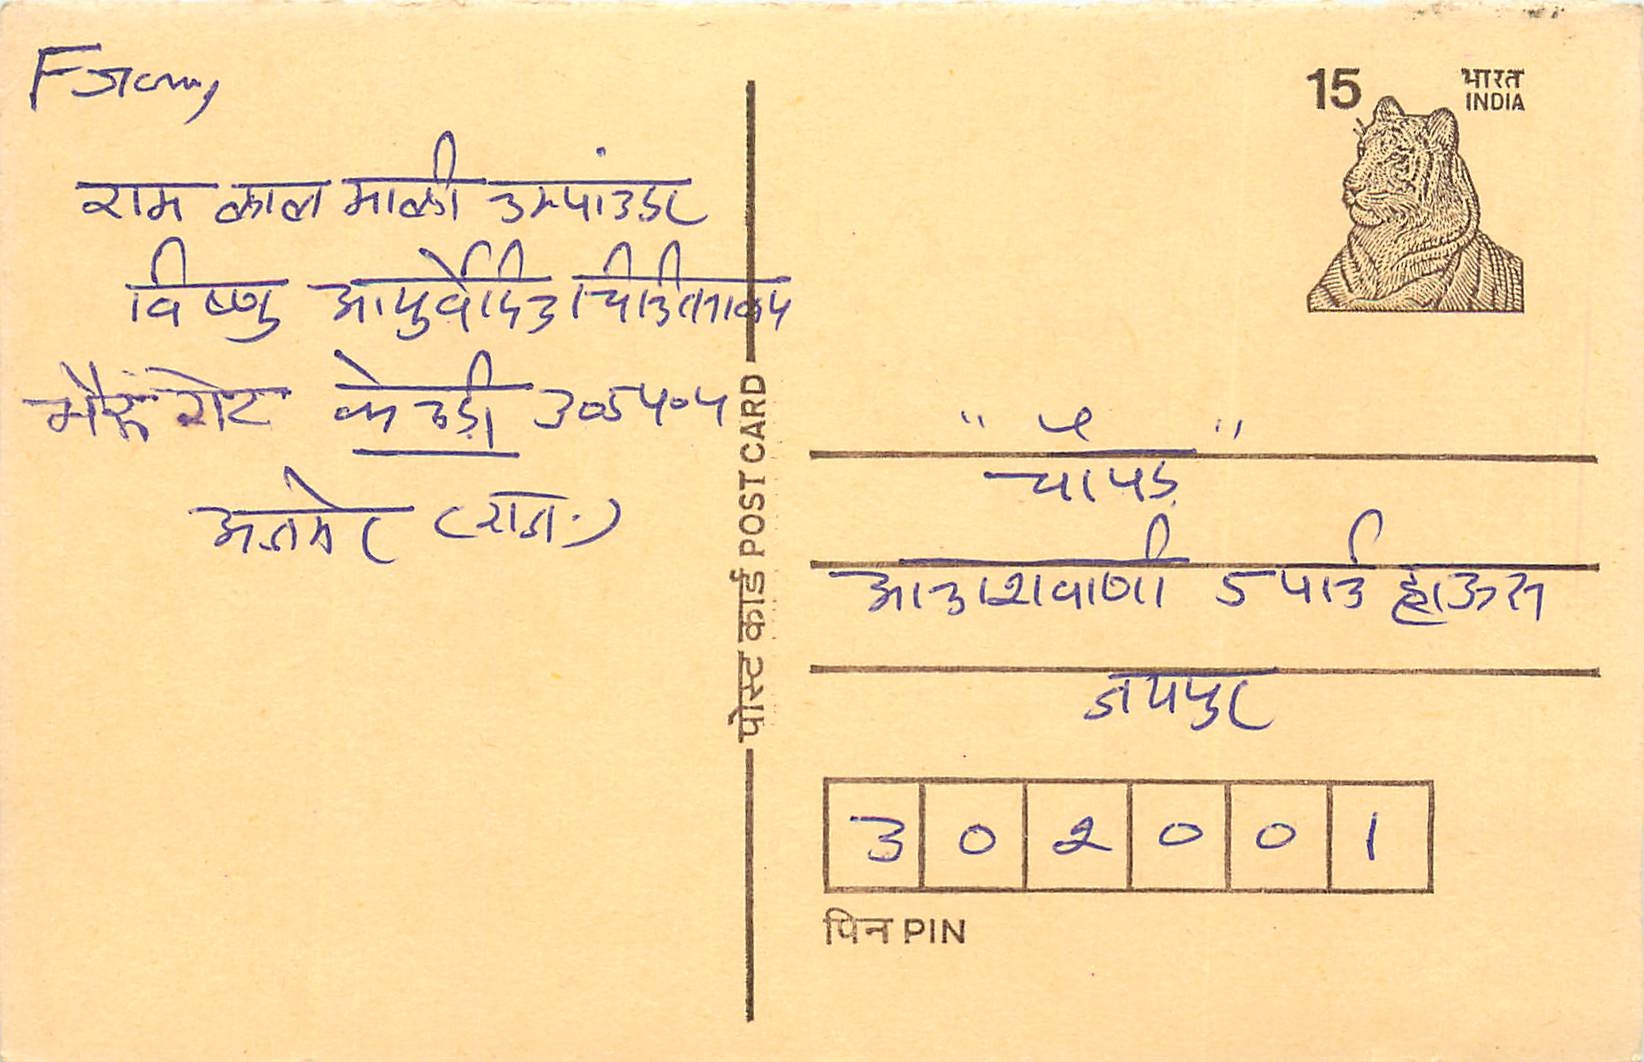 From,
राम लाल माली कम्पाउंडर
विष्णु आयुर्वेदिक चिकित्सालय
भैरूं गेट केकड़ी 305404
अजमेर (राज.)
15 भारत
INDIA
पोस्ट कार्ड POST CARD
" चौपड़ "
आकाशवाणी डपार्क हाऊस
जयपुर
302001
पिन PIN